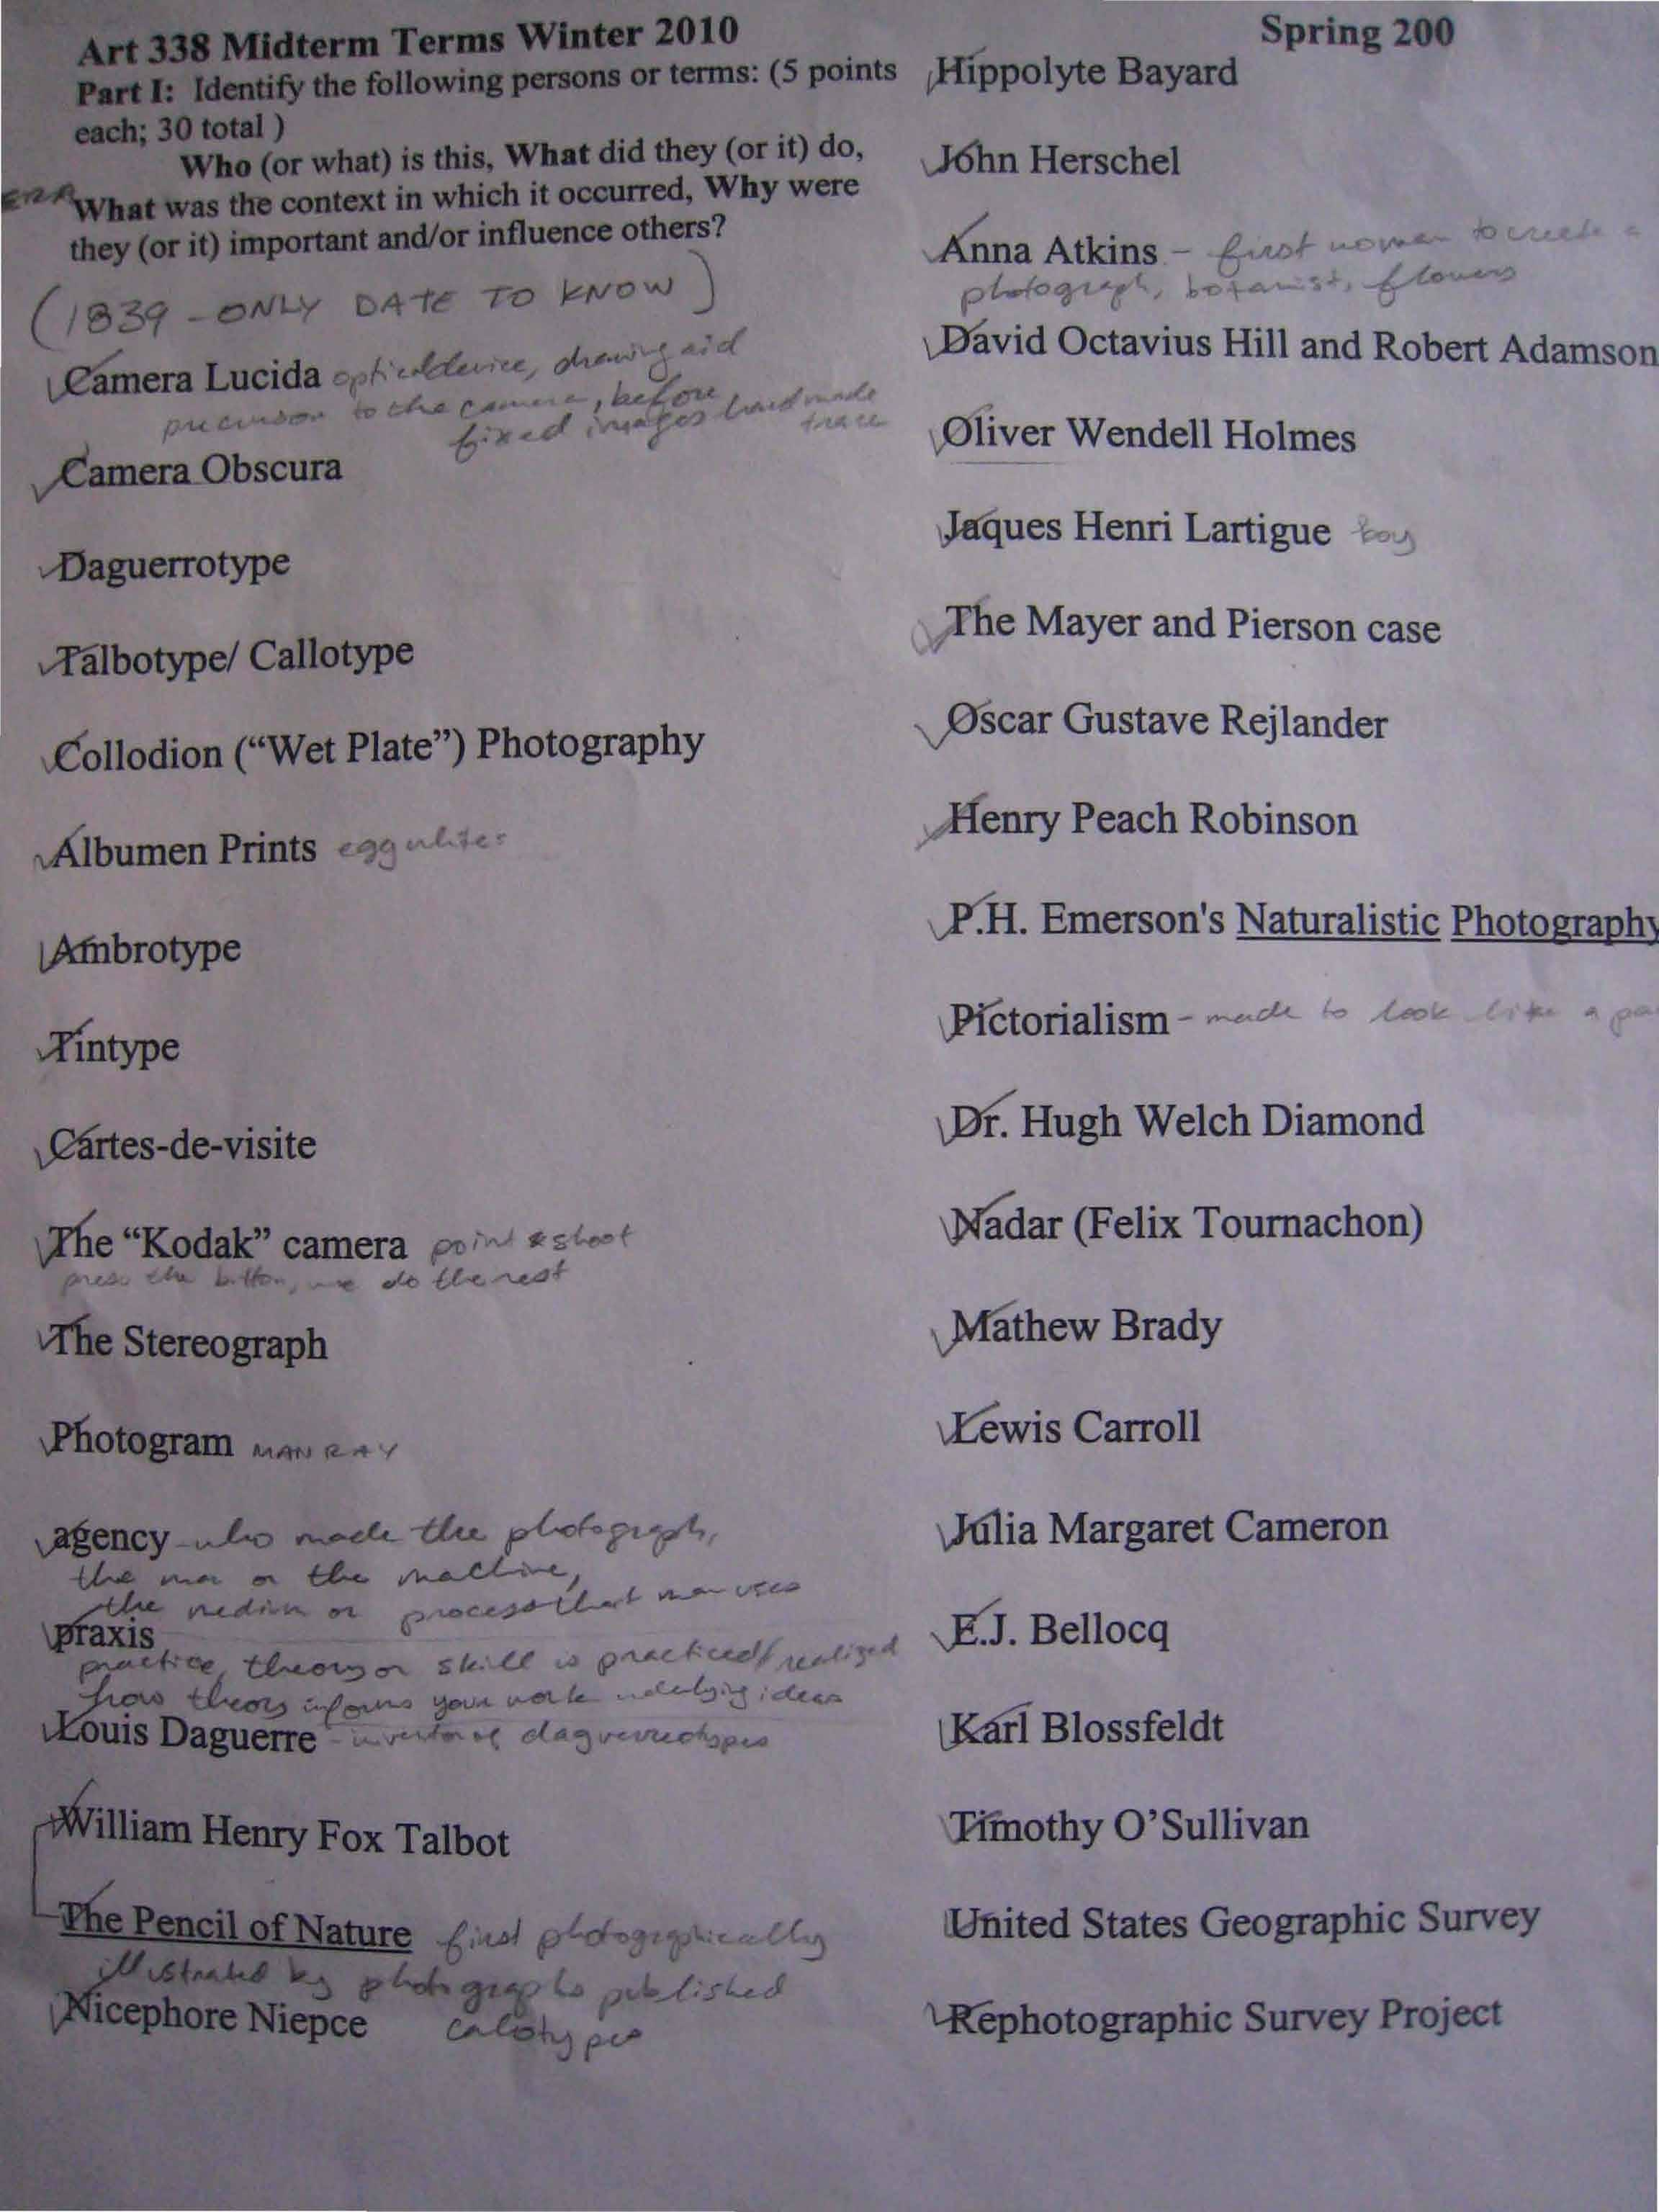 Art 338 Midterm Terms Winter 2010
Part I: Identify the following persons or terms: (5 points
each; 30 total )
Who (or what) is this, What did they (or it) do,
What was the context in which it occurred, Why were
they (or it) important and/or influence others?
(1839 - ONLY DATE TO KNOW)
Camera Lucida optical device, drawing aid
precursor to the camera, before
fixed images handmade
trace
Camera Obscura
Daguerrotype
Talbotype/ Callotype
Collodion (“Wet Plate”) Photography
Albumen Prints egg whites
Ambrotype
Tintype
Cartes-de-visite
The “Kodak” camera point & shoot
press the button, we do the rest
The Stereograph
Photogram MAN RAY
agency - who made the photograph,
the man or the machine,
the medium or process that man uses
praxis
practice, theory or skill is practiced/realized
how theory informs your work underlying ideas
Louis Daguerre - inventor of daguerreotypes
William Henry Fox Talbot
The Pencil of Nature first photographically
illustrated by photographs published
Nicephore Niepce calotypes
Spring 200
Hippolyte Bayard
John Herschel
Anna Atkins - first woman to create a
photograph, botanist, flowers
David Octavius Hill and Robert Adamson
Oliver Wendell Holmes
Jaques Henri Lartigue boy
The Mayer and Pierson case
Oscar Gustave Rejlander
Henry Peach Robinson
P.H. Emerson's Naturalistic Photography
Pictorialism - made to look like a
Dr. Hugh Welch Diamond
Nadar (Felix Tournachon)
Mathew Brady
Lewis Carroll
Julia Margaret Cameron
E.J. Bellocq
Karl Blossfeldt
Timothy O’Sullivan
United States Geographic Survey
Rephotographic Survey Project